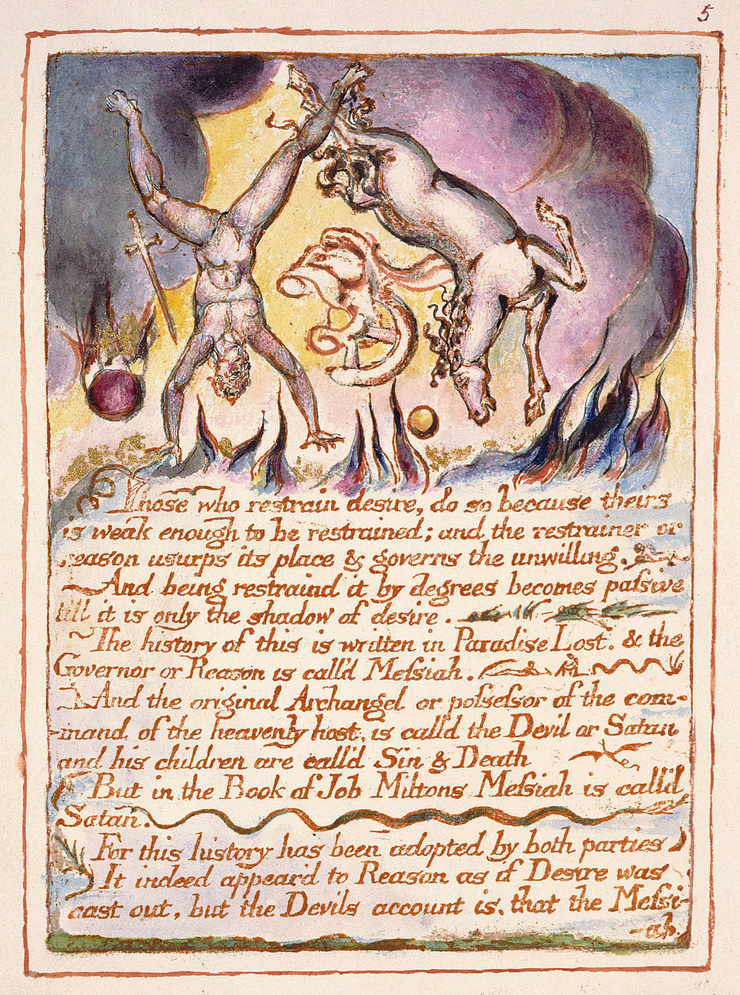 5
Those who restrain desire, do so because theirs
is weak enough to be restrained; and the restrainer or
reason usurps its place & governs the unwilling.
And being restraind it by degrees becomes paſsive
till it is only the shadow of desire.
The history of this is written in Paradise Lost. & the
Governor or Reason is call'd Meſsiah.
And the original Archangel or poſseſsor of the com-
mand of the heavenly host, is calld the Devil or Satan
and his children are call'd Sin & Death
But in the Book of Job Miltons Meſsiah is call'd
Satan.
For this history has been adopted by both parties
It indeed appear'd to Reason as if Desire was
cast out, but the Devils account is, that the Meſsi-
-ah